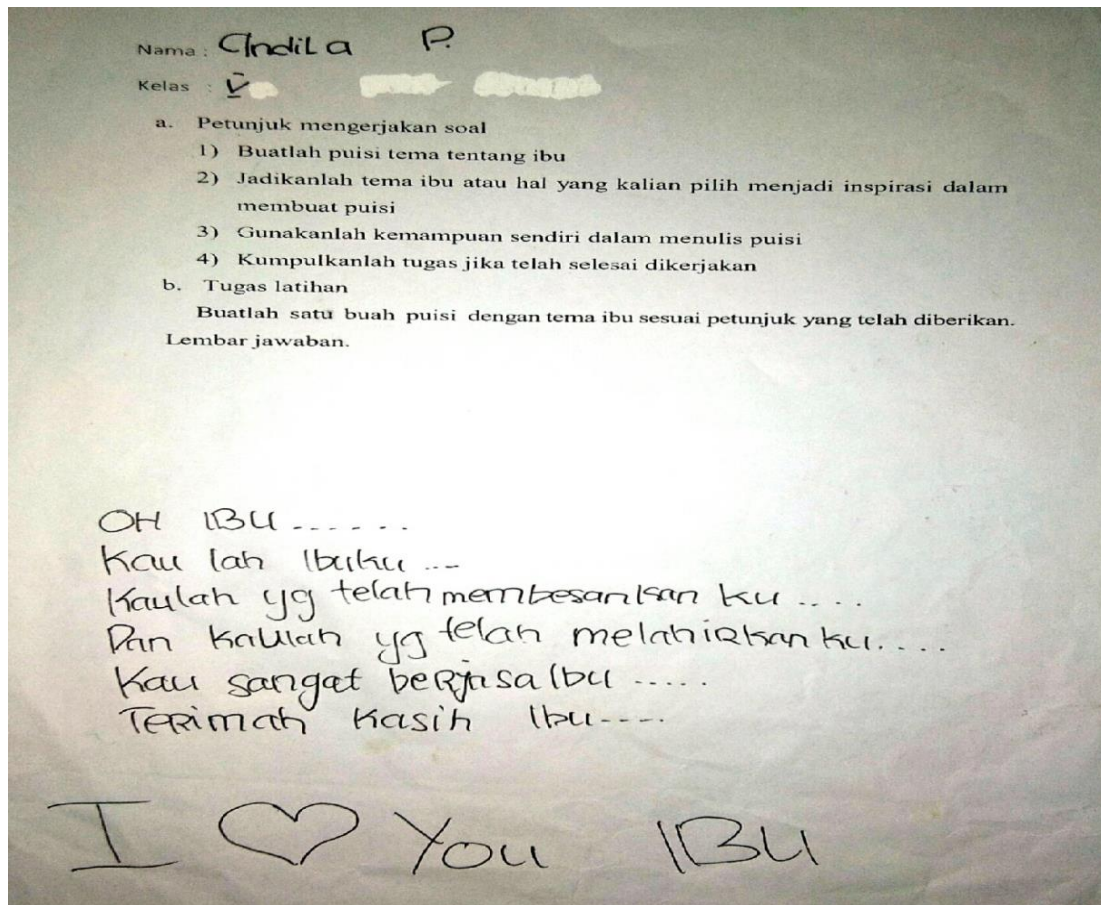 Nama : Andila P.
Kelas : V
a. Petunjuk mengerjakan soal
1) Buatlah puisi tema tentang ibu
2) Jadikanlah tema ibu atau hal yang kalian pilih menjadi inspirasi dalam
membuat puisi
3) Gunakanlah kemampuan sendiri dalam menulis puisi
4) Kumpulkanlah tugas jika telah selesai dikerjakan
b. Tugas latihan
Buatlah satu buah puisi dengan tema ibu sesuai petunjuk yang telah diberikan.
Lembar jawaban.
OH IBU ......
Kau lah Ibuku ...
Kaulah yg telah membesarkan ku ....
Dan kaulah yg telah melahiRkan ku....
Kau sangat beRjasa Ibu .....
TeRimah kasih Ibu....
I ♡ You IBU